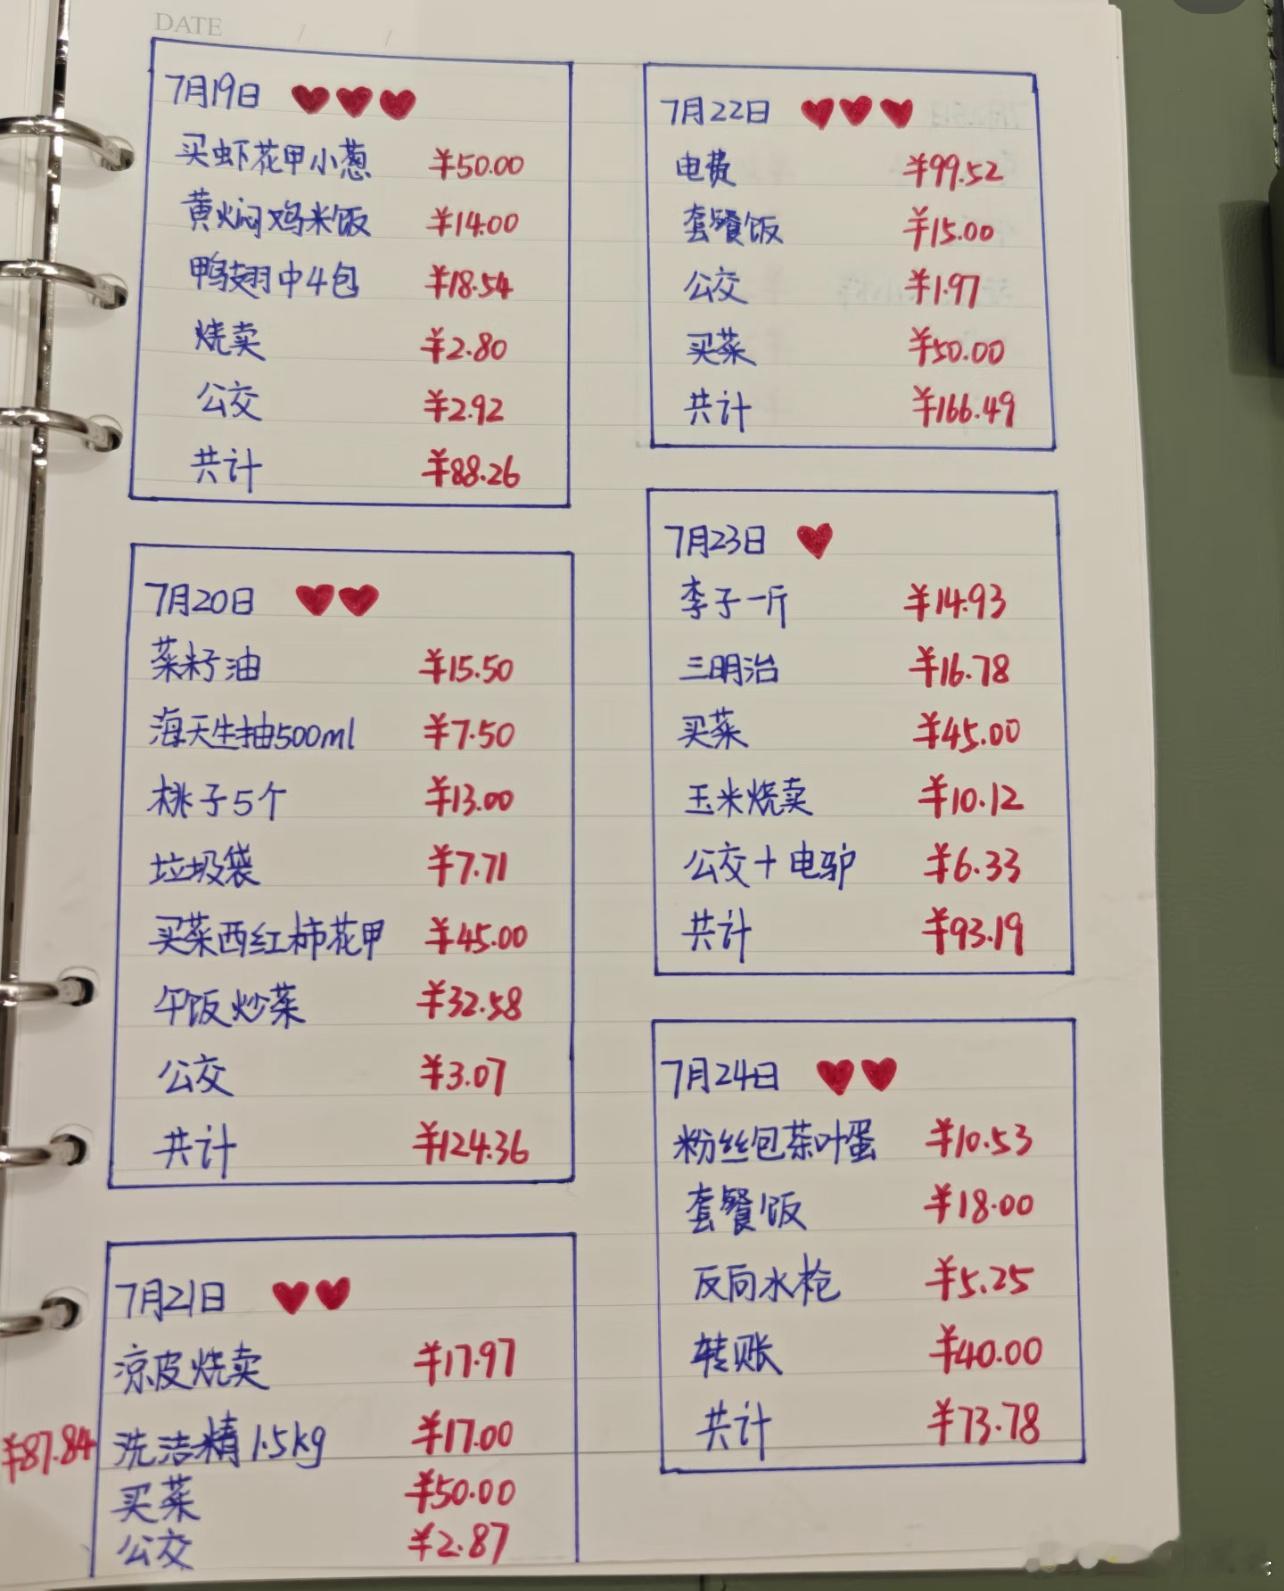 DATE / /
7月19日
买虾花甲小葱 ¥50.00
黄焖鸡米饭 ¥14.00
鸭翅中4包 ¥18.54
烧卖 ¥2.80
公交 ¥2.92
共计 ¥88.26
7月20日
菜籽油 ¥15.50
海天生抽500ml ¥7.50
桃子5个 ¥13.00
垃圾袋 ¥7.71
买菜西红柿花甲 ¥45.00
午饭炒菜 ¥32.58
公交 ¥3.07
共计 ¥124.36
7月21日
凉皮烧卖 ¥17.97
¥87.84 洗洁精1.5kg ¥17.00
买菜 ¥50.00
公交 ¥2.87
7月22日
电费 ¥99.52
套餐饭 ¥15.00
公交 ¥1.97
买菜 ¥50.00
共计 ¥166.49
7月23日
李子一斤 ¥14.93
三明治 ¥16.78
买菜 ¥45.00
玉米烧卖 ¥10.12
公交+电驴 ¥6.33
共计 ¥93.19
7月24日
粉丝包茶叶蛋 ¥10.53
套餐饭 ¥18.00
反向水枪 ¥5.25
转账 ¥40.00
共计 ¥73.78